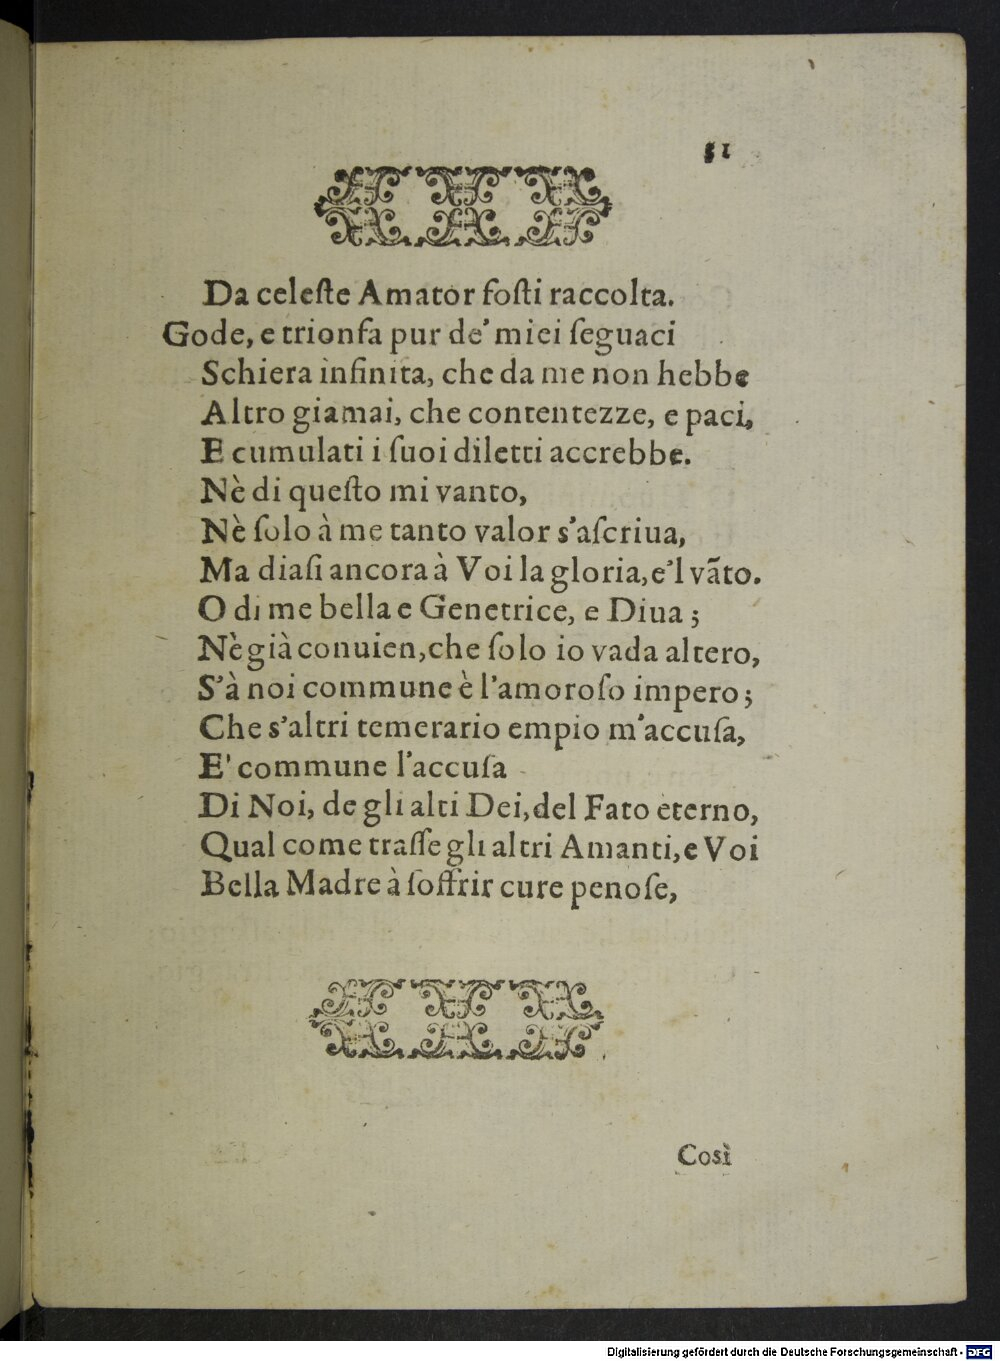 51
Da celeſte Amator foſti raccolta.
Gode, e trionfa pur de' miei ſeguaci
Schiera infinita, che da me non hebbe
Altro giamai, che contentezze, e paci,
E cumulati i ſuoi diletti accrebbe.
Nè di queſto mi vanto,
Nè ſolo à me tanto valor s'aſcriua,
Ma diaſi ancora à Voi la gloria, e'l vãto.
O di me bella e Genetrice, e Diua;
Nè già conuien, che ſolo io vada altero,
S'à noi commune è l'amoroſo impero;
Che s'altri temerario empio m'accuſa,
E' commune l'accuſa
Di Noi, de gli alti Dei, del Fato eterno,
Qual come traſſe gli altri Amanti, e Voi
Bella Madre à ſoffrir cure penoſe,
Così
Digitalisierung gefördert durch die Deutsche Forschungsgemeinschaft - DFG